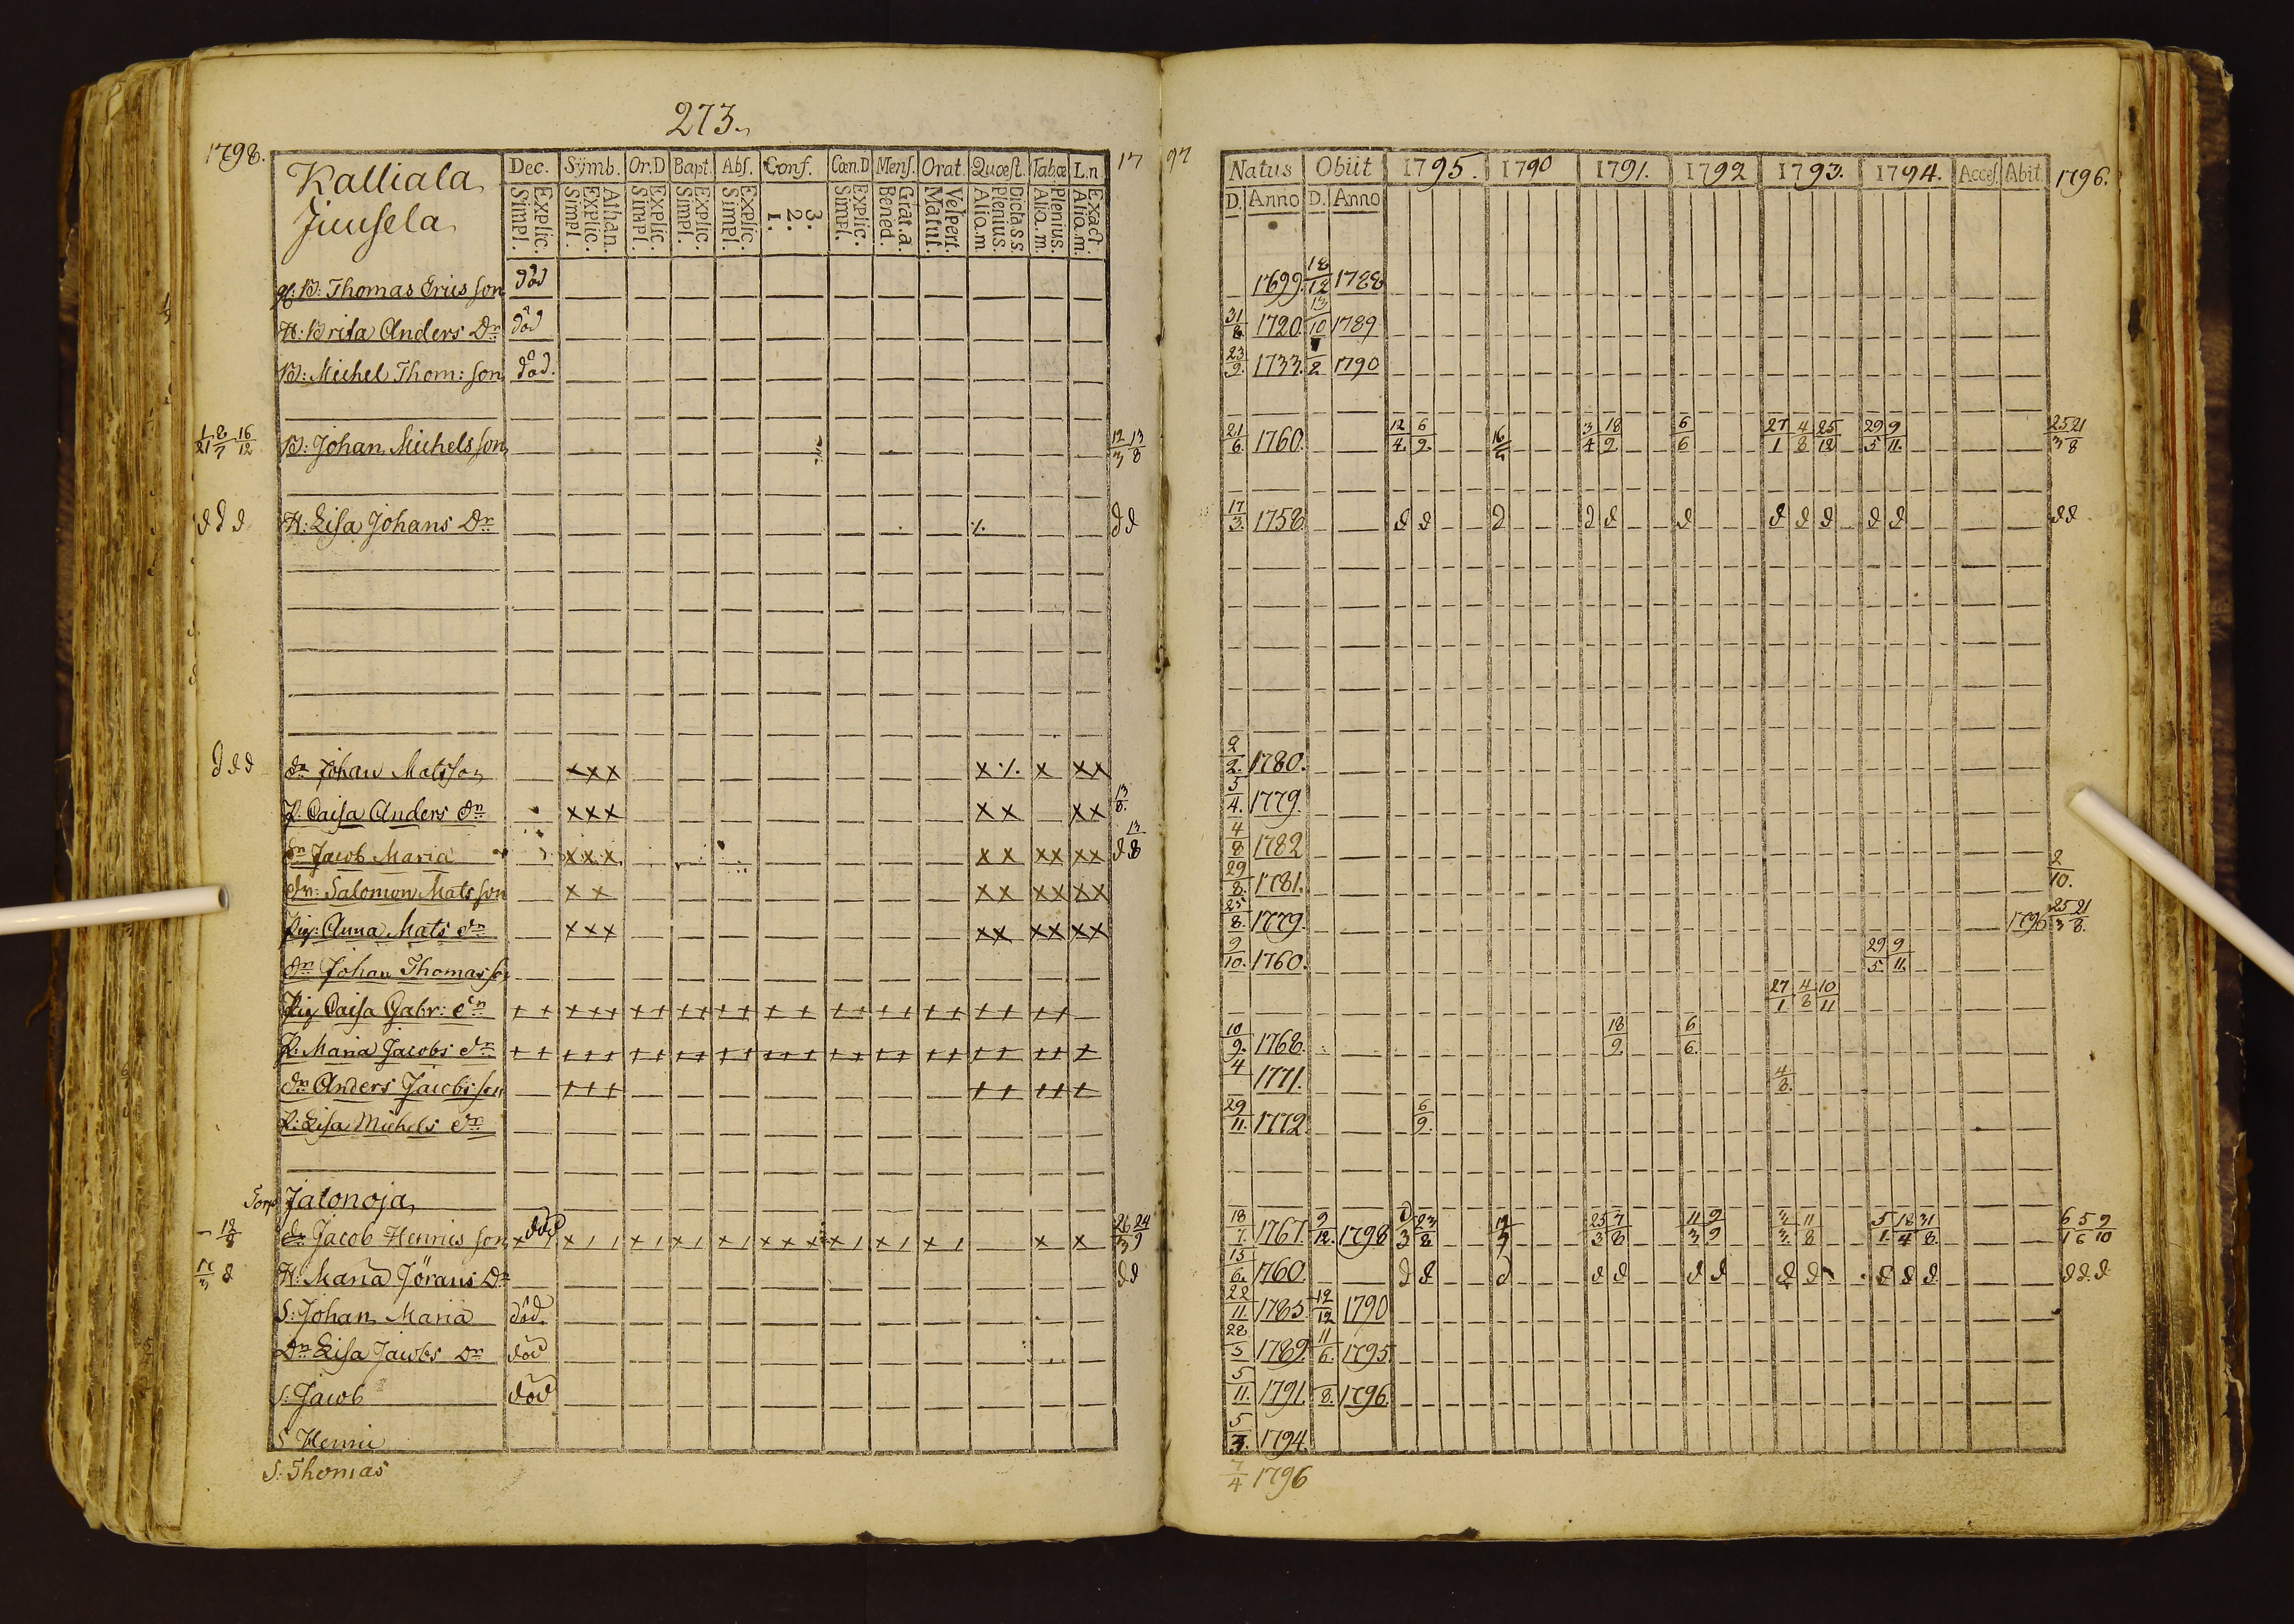 273.
1798.
Kalliala
Juusela
Dec. Symb. Or.D Bapt. Abs. Conf. Cœn.D Mens. Orat. Quœst. Tabœ L.n 17 97
Explic. Simpl. Athan. Explic. Simpl. Explic. Simpl. Explic. Simpl. Explic. Simpl. 3. 2. 1. Explic. Simpl. Grat.a. Bened. Vespert. Matut. Dicta s.s. Plenius. Aliq.m. Plenius. Aliq.m. Exact. Aliq.m.
Natus Obiit 1795. 1790 1791. 1792 1793. 1794. Acces. Abit. 1796.
D. Anno D. Anno
B: Thomas Ericsson död 1699. 18/12 1788
H: Brita Anders Dr död 31/8 1720 13/10 1789
B: Michel Thom: son död. 23/9. 1733. /2 1790
B: Johan Michelsson 12/3 13/8 21/6. 1760. 12/4. 6/9. 3/4 18/9. 6/6 27/1 4/8 25/12 29/5 9/11. 25/3 21/8
d d d H: Lisa Johans Dr ./. d d 17/3. 1758 d d d d d d d d d d d d d
d d d dr Johan Matsson x x x x ./. x x x 2/2. 1780.
P. Caisa Anders dr x x x x x x x 13/8. 5/4. 1779.
dr Jacob Maria x x x x x x x x x d 13/8 4/8 1782
dr: Salomon Matsson x x x x x x x x 29/8. 1781. 2/10.
Pig: Anna Mats dr x x x x x x x x x 25/8. 1779. 1796 25/3 21/8.
dr Johan Thomasson 9/10. 1760. 29/5 9/11.
Pig Caisa Gabr: dr + + + + + + + + + + + + + + + + + + + + + + + + 27/1 4/8 10/11
P. Maria Jacobs dr + + + + + + + + + + + + + + + + + + + + + + + + + + 10/9. 1768. 18/9. 6/6.
dr Anders Jacobsson + + + + + + + + 4 1771. 4/8.
P: Lisa Michels dr 29/11. 1772. 6/9.
Torp Jalonoja
18/8 dr Jacob Henricsson död 26/3 24/9 18/7. 1767. 9/12. 1798 23/8 25/3 7/8 11/3 9/9 11/8 5/1. 18/4 31/8. 6/1 5/6 9/10
d H: Maria Jörans Dr d d 15/6. 1760. d d d d d d d d d d d d d d d
S: Johan Maria död. 22/11. 1785. 12/12 1790
Dr Lisa Jacobs Dr död 28/3 1789. 11/6. 1795.
S: Jacob död 5/11. 1791. /8. 1796.
S Henric 5/3. 1794.
S: Thomas 7/4 1796